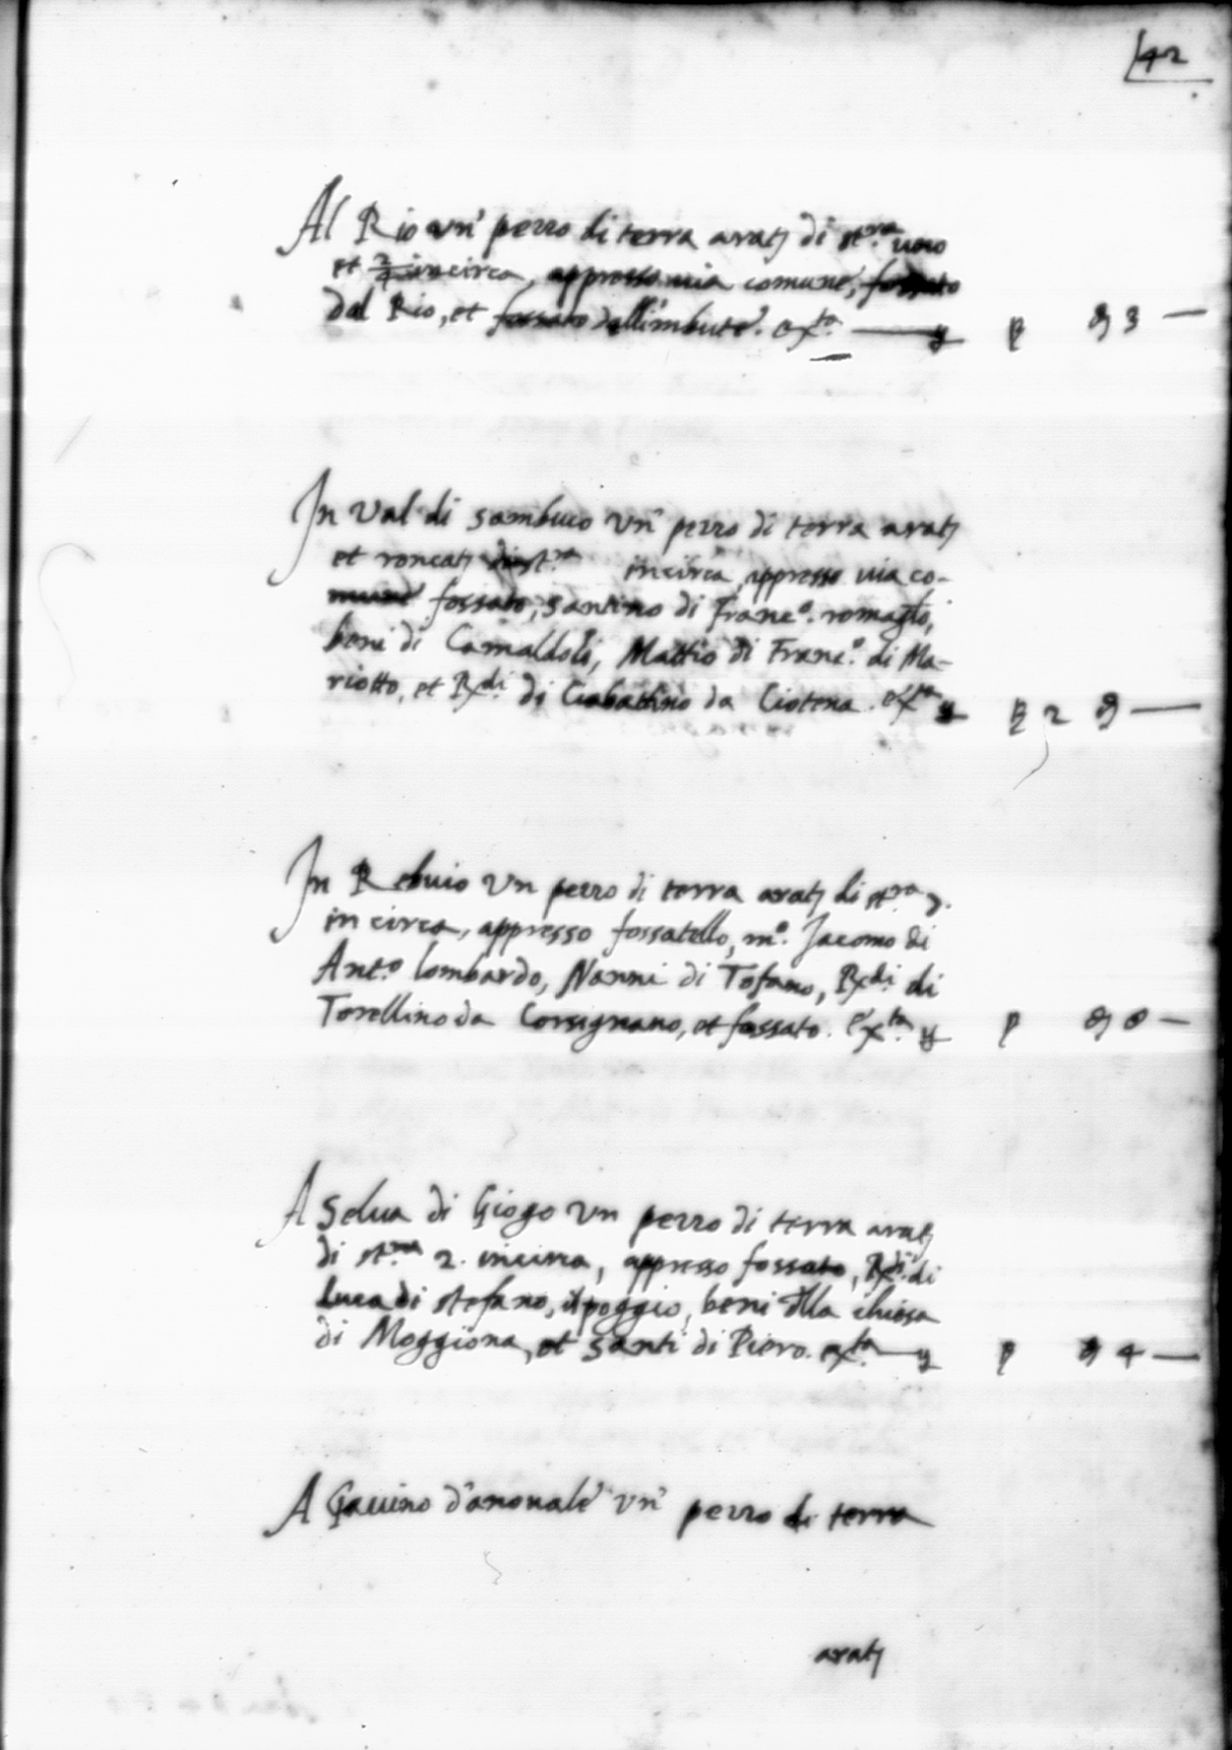 42
Al Rio un' pezzo di terra arat. di st.ra uno
et 2/4 in circa, appresso via comune, fossato
del Rio, et fossato dell'imbute. ext.ta
§ 3 —
In Val di sambuco un' pezzo di terra arat.
et roncat. st.ra in circa, appresso via co-
mune fossato, santino di Franc.o romagto,
beni di Camaldoli, Mattio di Franc.o di Ma-
riotto, et Rxdi di Ciabattino da Ciotena. ext.ta
2 —
In Rebuio un pezzo di terra arat. di st.ra 2.
in circa, appresso fossatello, m.o Jacomo di
Ant.o lombardo, Nanni di Tofano, Rxdi di
Torellino da Corsignano, et fossato. ext.ta
8 —
A Selua di Giogo un pezzo di terra arat.
di st.ra 2. in circa, appresso fossato, Rxdi di
Luca di stefano, il poggio, beni della chiesa
di Moggiona, et santi di Piero. ext.ta
4 —
A Gauino d'anouale un' pezzo di terra
arat.